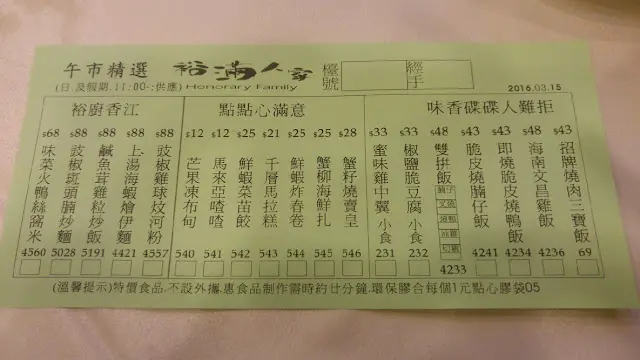 午市精選 裕滿人家 檯號 經手
(日.及假期.11:00-:供應) Honorary Family 2016.03.15
裕廚香江
$68 $88 $88 $88 $88
味菜火鴨絲窩米
豉椒斑頭腩炒麵
鹹魚茸雞粒炒飯
上湯海蝦燴伊麵
豉椒雞球炆河粉
4560 5028 5191 4421 4557
點點心滿意
$12 $12 $25 $21 $25 $25 $28
芒果凍布甸
馬來亞喳喳
鮮蝦菜苗餃
千層馬拉糕
鮮蝦炸春卷
蟹柳海鮮扎
蟹籽燒賣皇
540 541 542 543 544 545 546
味香碟碟人難拒
$33 $33 $48 $43 $43 $48 $43
蜜味雞中翼 小食
椒鹽脆豆腐 小食
雙拼飯
脆皮燒腩仔飯
即燒脆皮燒鴨飯
海南文昌雞飯
招牌燒肉三寶飯
231 232 4233 4241 4234 4236 69
(溫馨提示)特價食品.不設外攜.惠食品制作需時約廿分鐘.環保膠合每個1元點心膠袋05